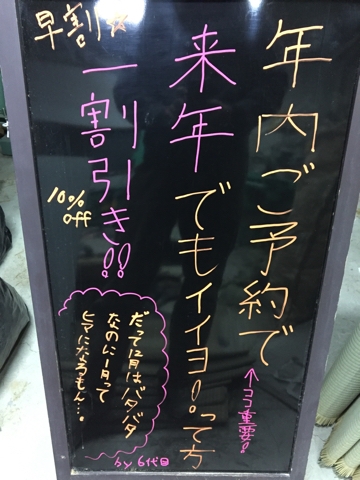 早割☆
年内ご予約で
来年でもイイヨ!!って方
↑ココ重要!
一割引き!!
10% off
だって12月はバタバタ
なのに1月って
ヒマになるもん…。
by 6代目